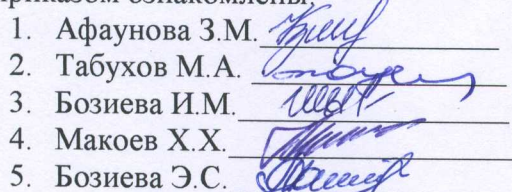 приказом ознакомлены:
1. Афаунова З.М.
2. Табухов М.А.
3. Бозиева И.М.
4. Макоев Х.Х.
5. Бозиева Э.С.